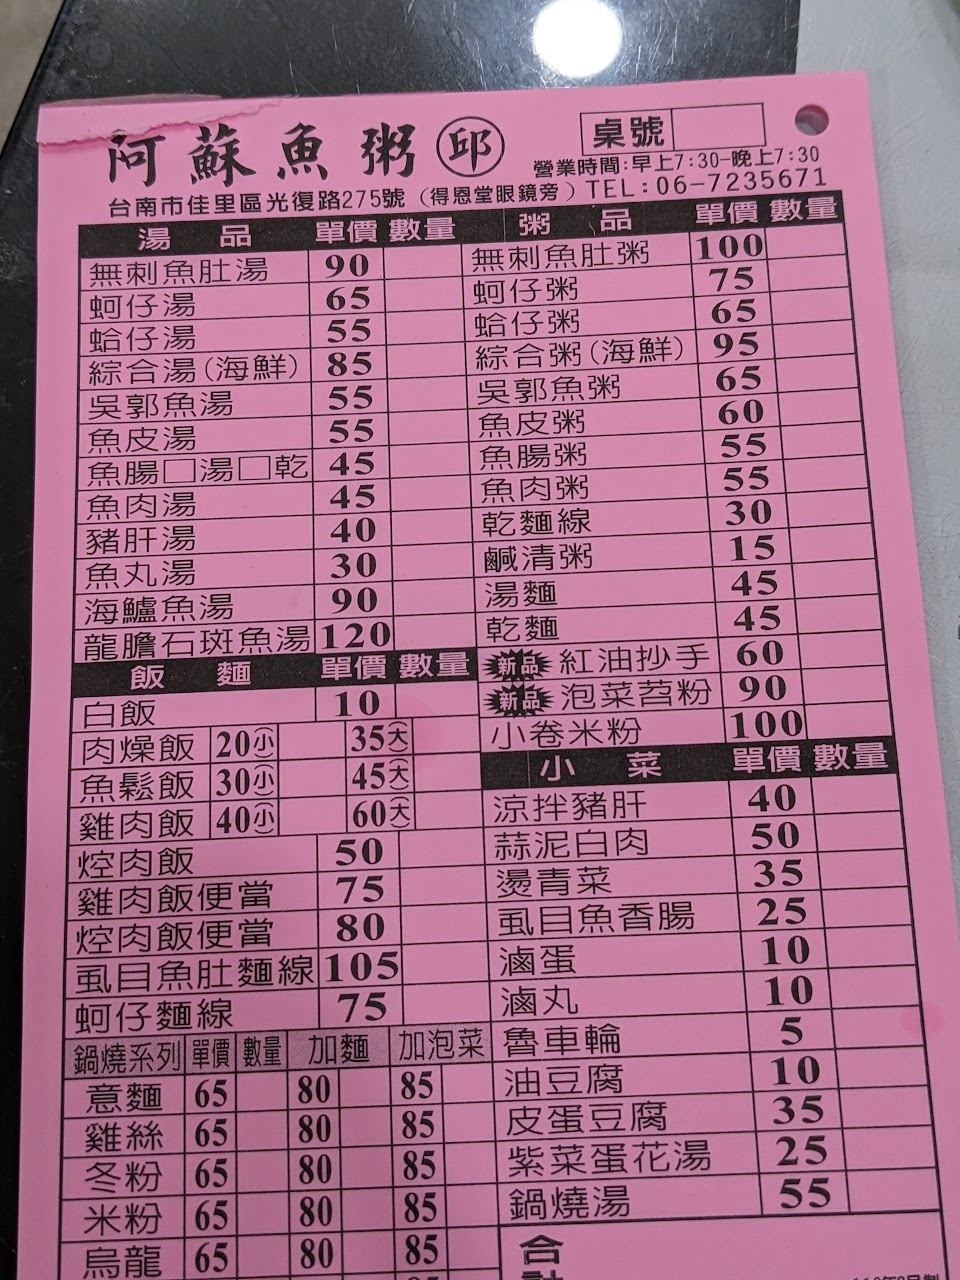 阿蘇魚粥 邱
桌號
營業時間:早上7:30-晚上7:30
台南市佳里區光復路275號（得恩堂眼鏡旁）TEL:06-7235671
湯品 單價 數量
無刺魚肚湯 90
蚵仔湯 65
蛤仔湯 55
綜合湯(海鮮) 85
吳郭魚湯 55
魚皮湯 55
魚腸□湯□乾 45
魚肉湯 45
豬肝湯 40
魚丸湯 30
海鱸魚湯 90
龍膽石斑魚湯 120
飯麵 單價 數量
白飯 10
肉燥飯 20(小) 35(大)
魚鬆飯 30(小) 45(大)
雞肉飯 40(小) 60(大)
焢肉飯 50
雞肉飯便當 75
焢肉飯便當 80
虱目魚肚麵線 105
蚵仔麵線 75
鍋燒系列 單價 數量 加麵 加泡菜
意麵 65 80 85
雞絲 65 80 85
冬粉 65 80 85
米粉 65 80 85
烏龍 65 80 85
粥品 單價 數量
無刺魚肚粥 100
蚵仔粥 75
蛤仔粥 65
綜合粥(海鮮) 95
吳郭魚粥 65
魚皮粥 60
魚腸粥 55
魚肉粥 55
乾麵線 30
鹹清粥 15
湯麵 45
乾麵 45
新品 紅油抄手 60
新品 泡菜苕粉 90
小卷米粉 100
小菜 單價 數量
涼拌豬肝 40
蒜泥白肉 50
燙青菜 35
虱目魚香腸 25
滷蛋 10
滷丸 10
魯車輪 5
油豆腐 10
皮蛋豆腐 35
紫菜蛋花湯 25
鍋燒湯 55
合